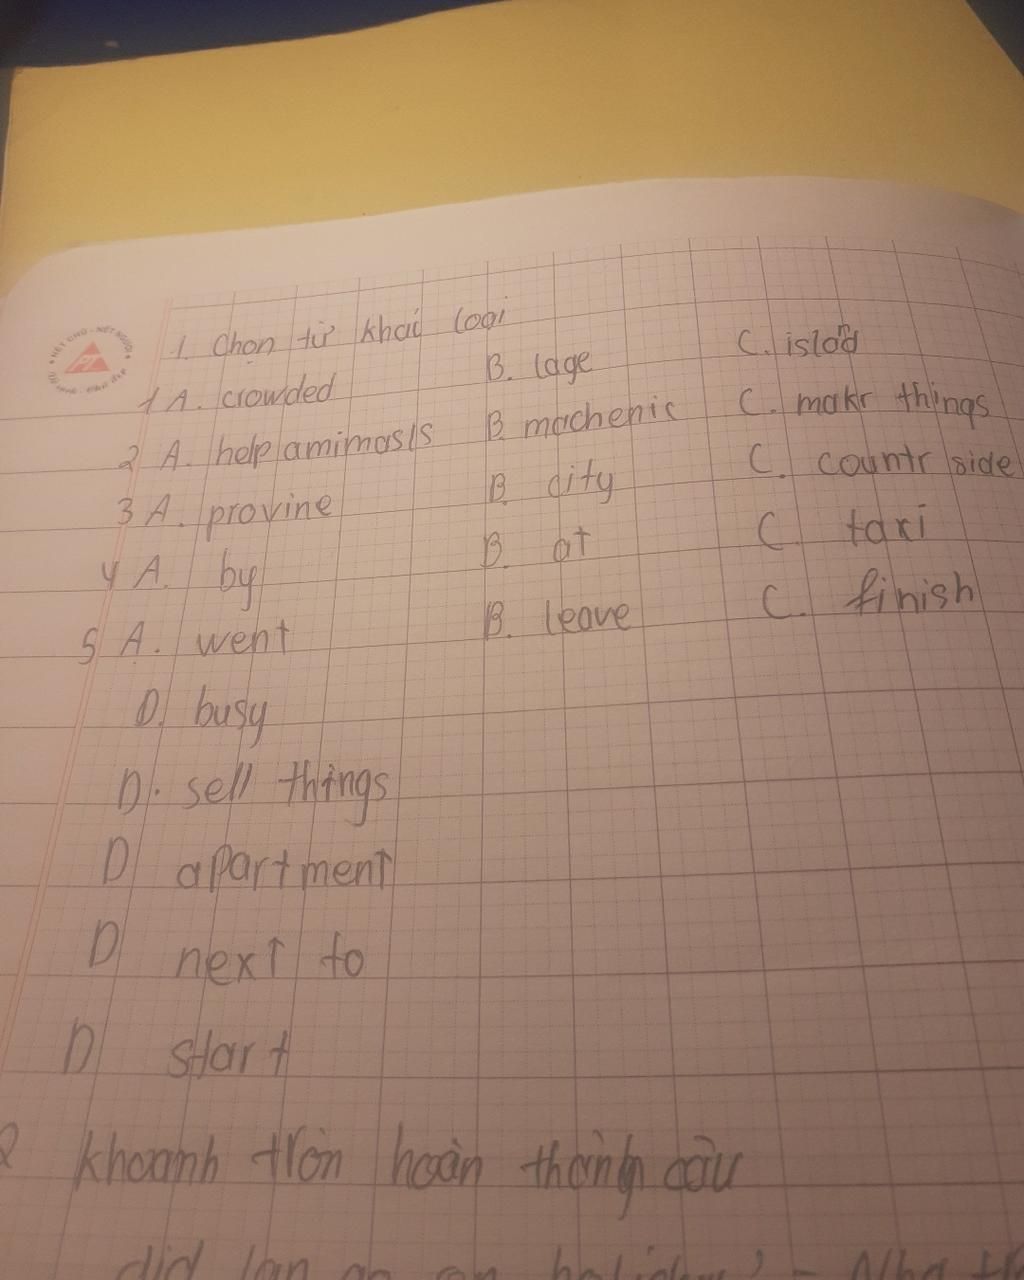 1. Chọn từ khác loại
1 A. crowded B. lage C. islod
2 A. help amimasls B. machenic C. makr things
3 A. provine B. city C. countr side
4 A. by B. at C. taxi
5 A. went B. leave C. finish
D. busy
D. sell things
D apartment
D next to
D start
2 khoanh tròn hoàn thành câu
did lan go on holiday? - Nha